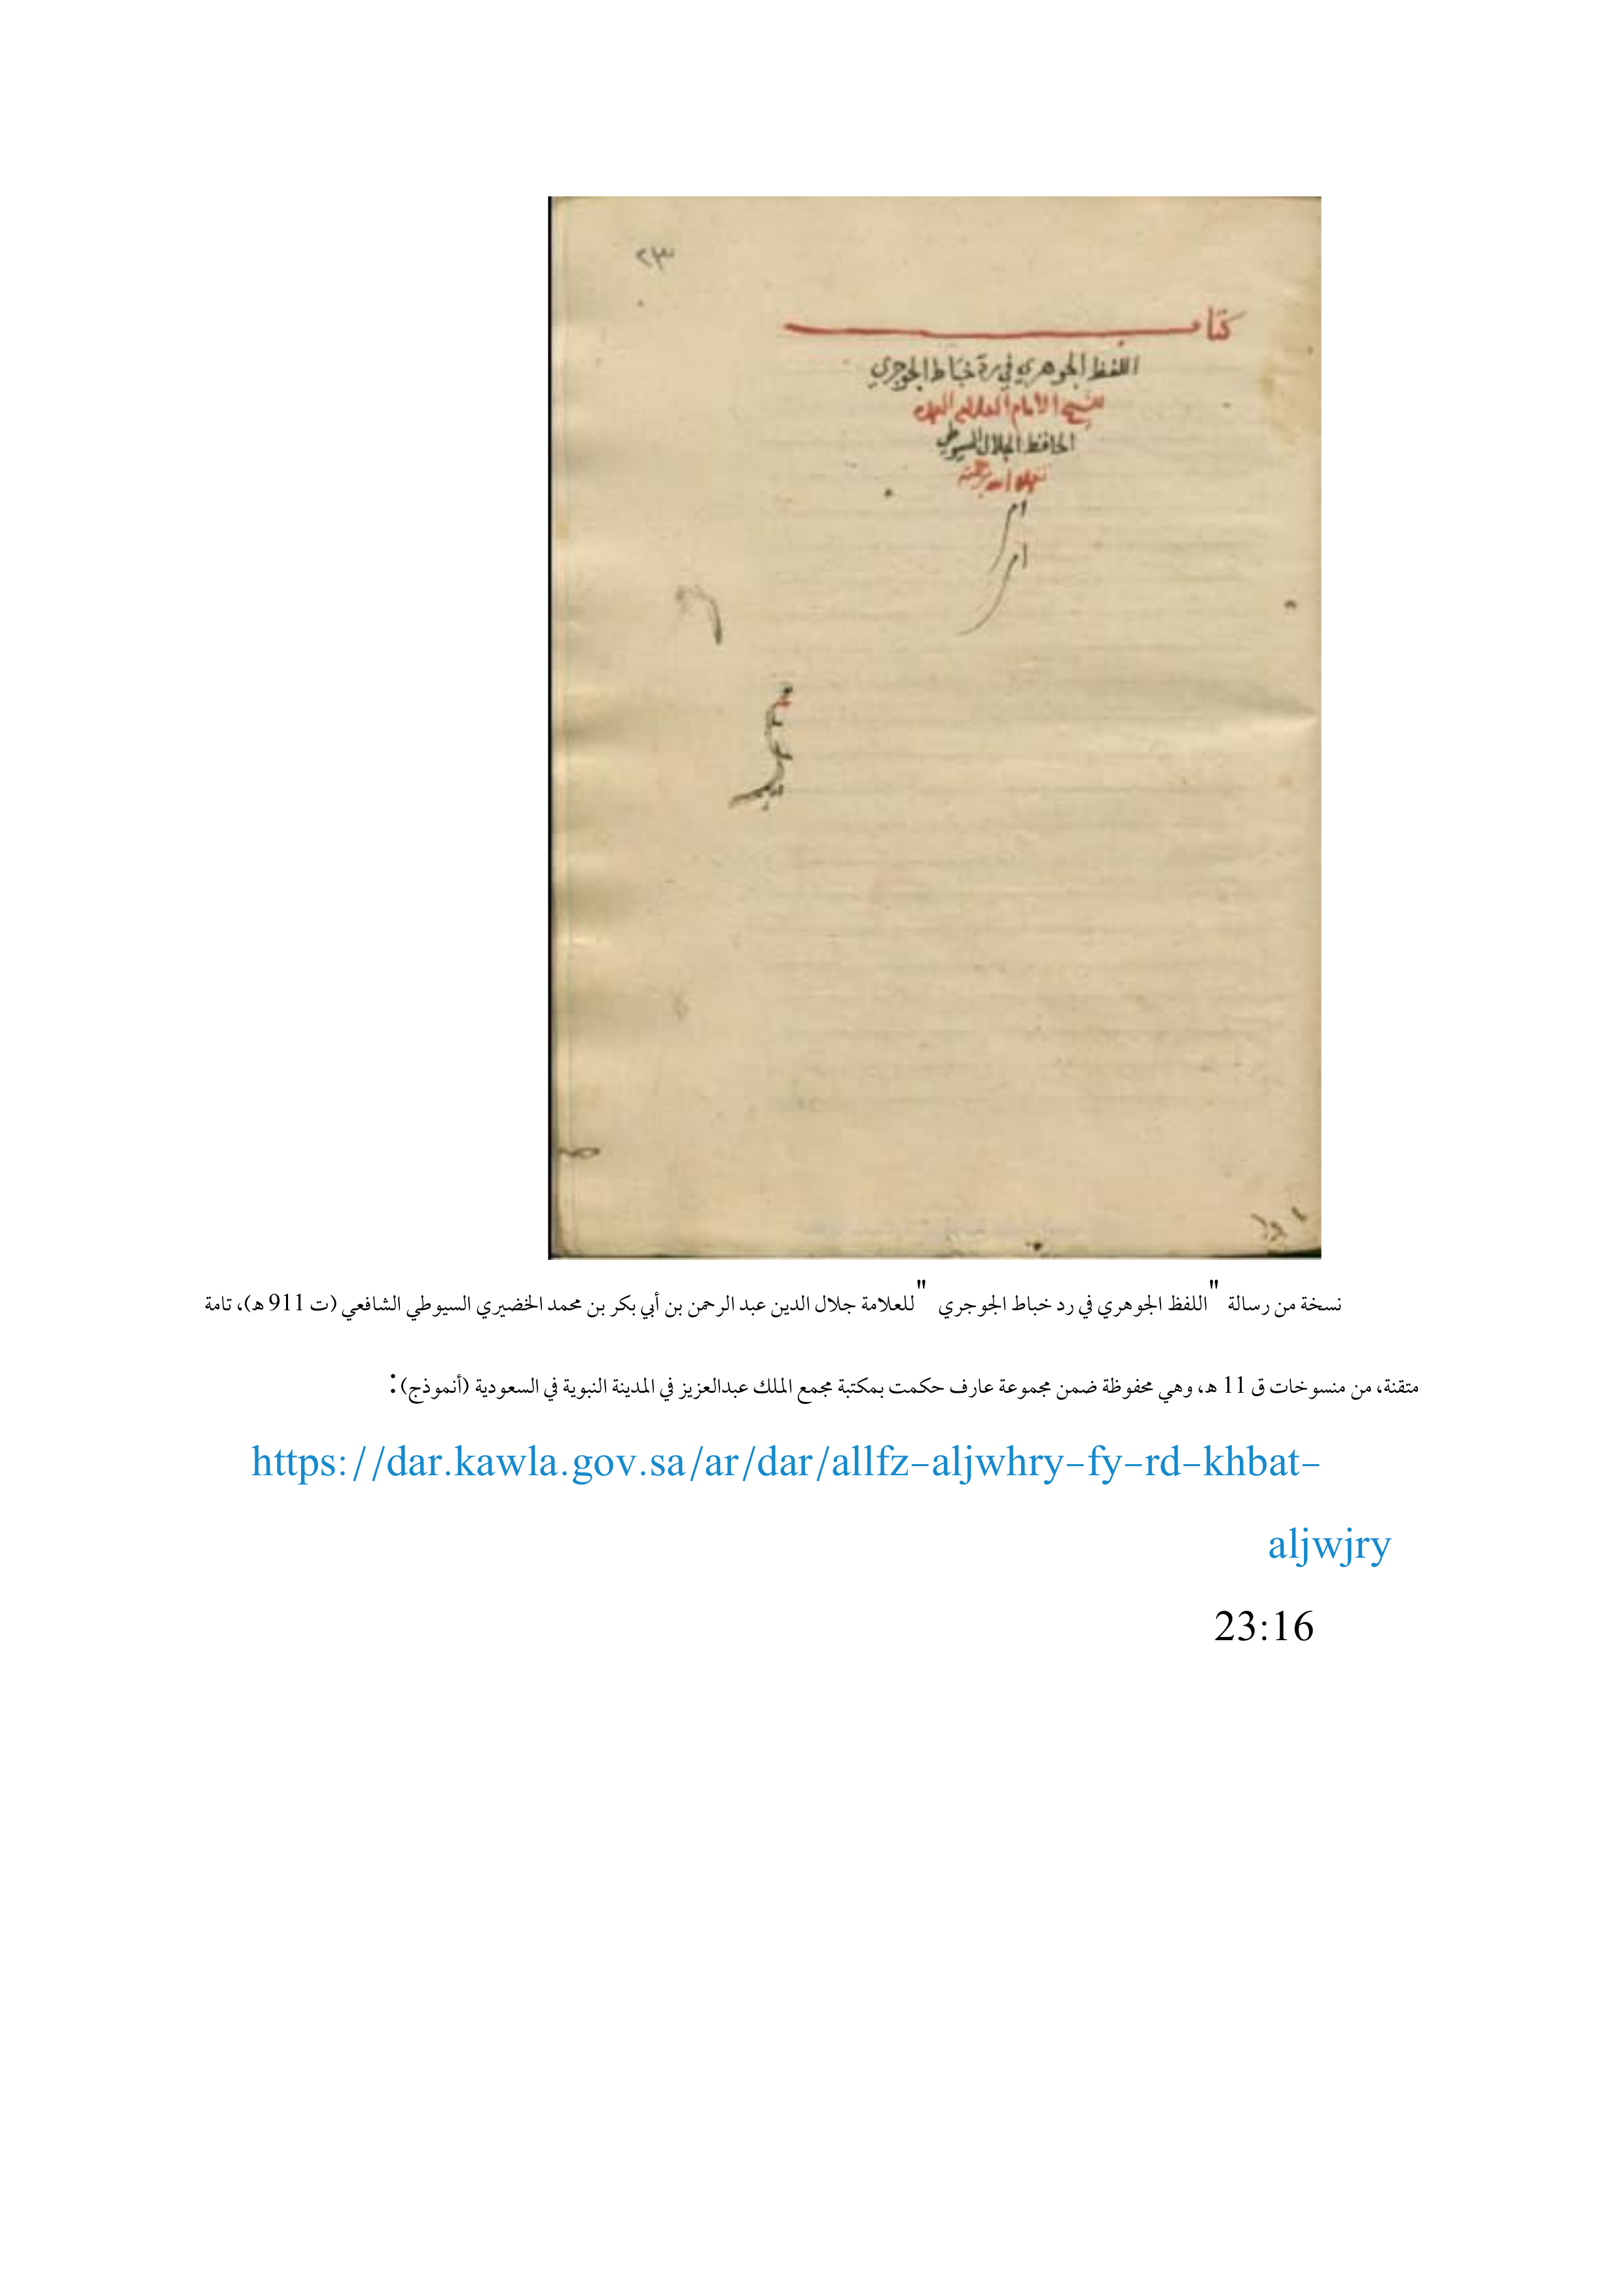 ٢٣
كتاب
اللفظ الجوهري في رد خباط الجوجري
للشيخ الامام العالم
الحافظ الجلال السيوطي
تغمده الله برحمته
ام
ام
نسخة من رسالة "اللفظ الجوهري في رد خباط الجوجري" للعلامة جلال الدين عبد الرحمن بن أبي بكر بن محمد الخضيري السيوطي الشافعي (ت 911 هـ)، تامة
متقنة، من منسوخات ق 11 هـ، وهي محفوظة ضمن مجموعة عارف حكمت بمكتبة مجمع الملك عبدالعزيز في المدينة النبوية في السعودية (أنموذج):
https://dar.kawla.gov.sa/ar/dar/allfz-aljwhry-fy-rd-khbat-
aljwjry
23:16